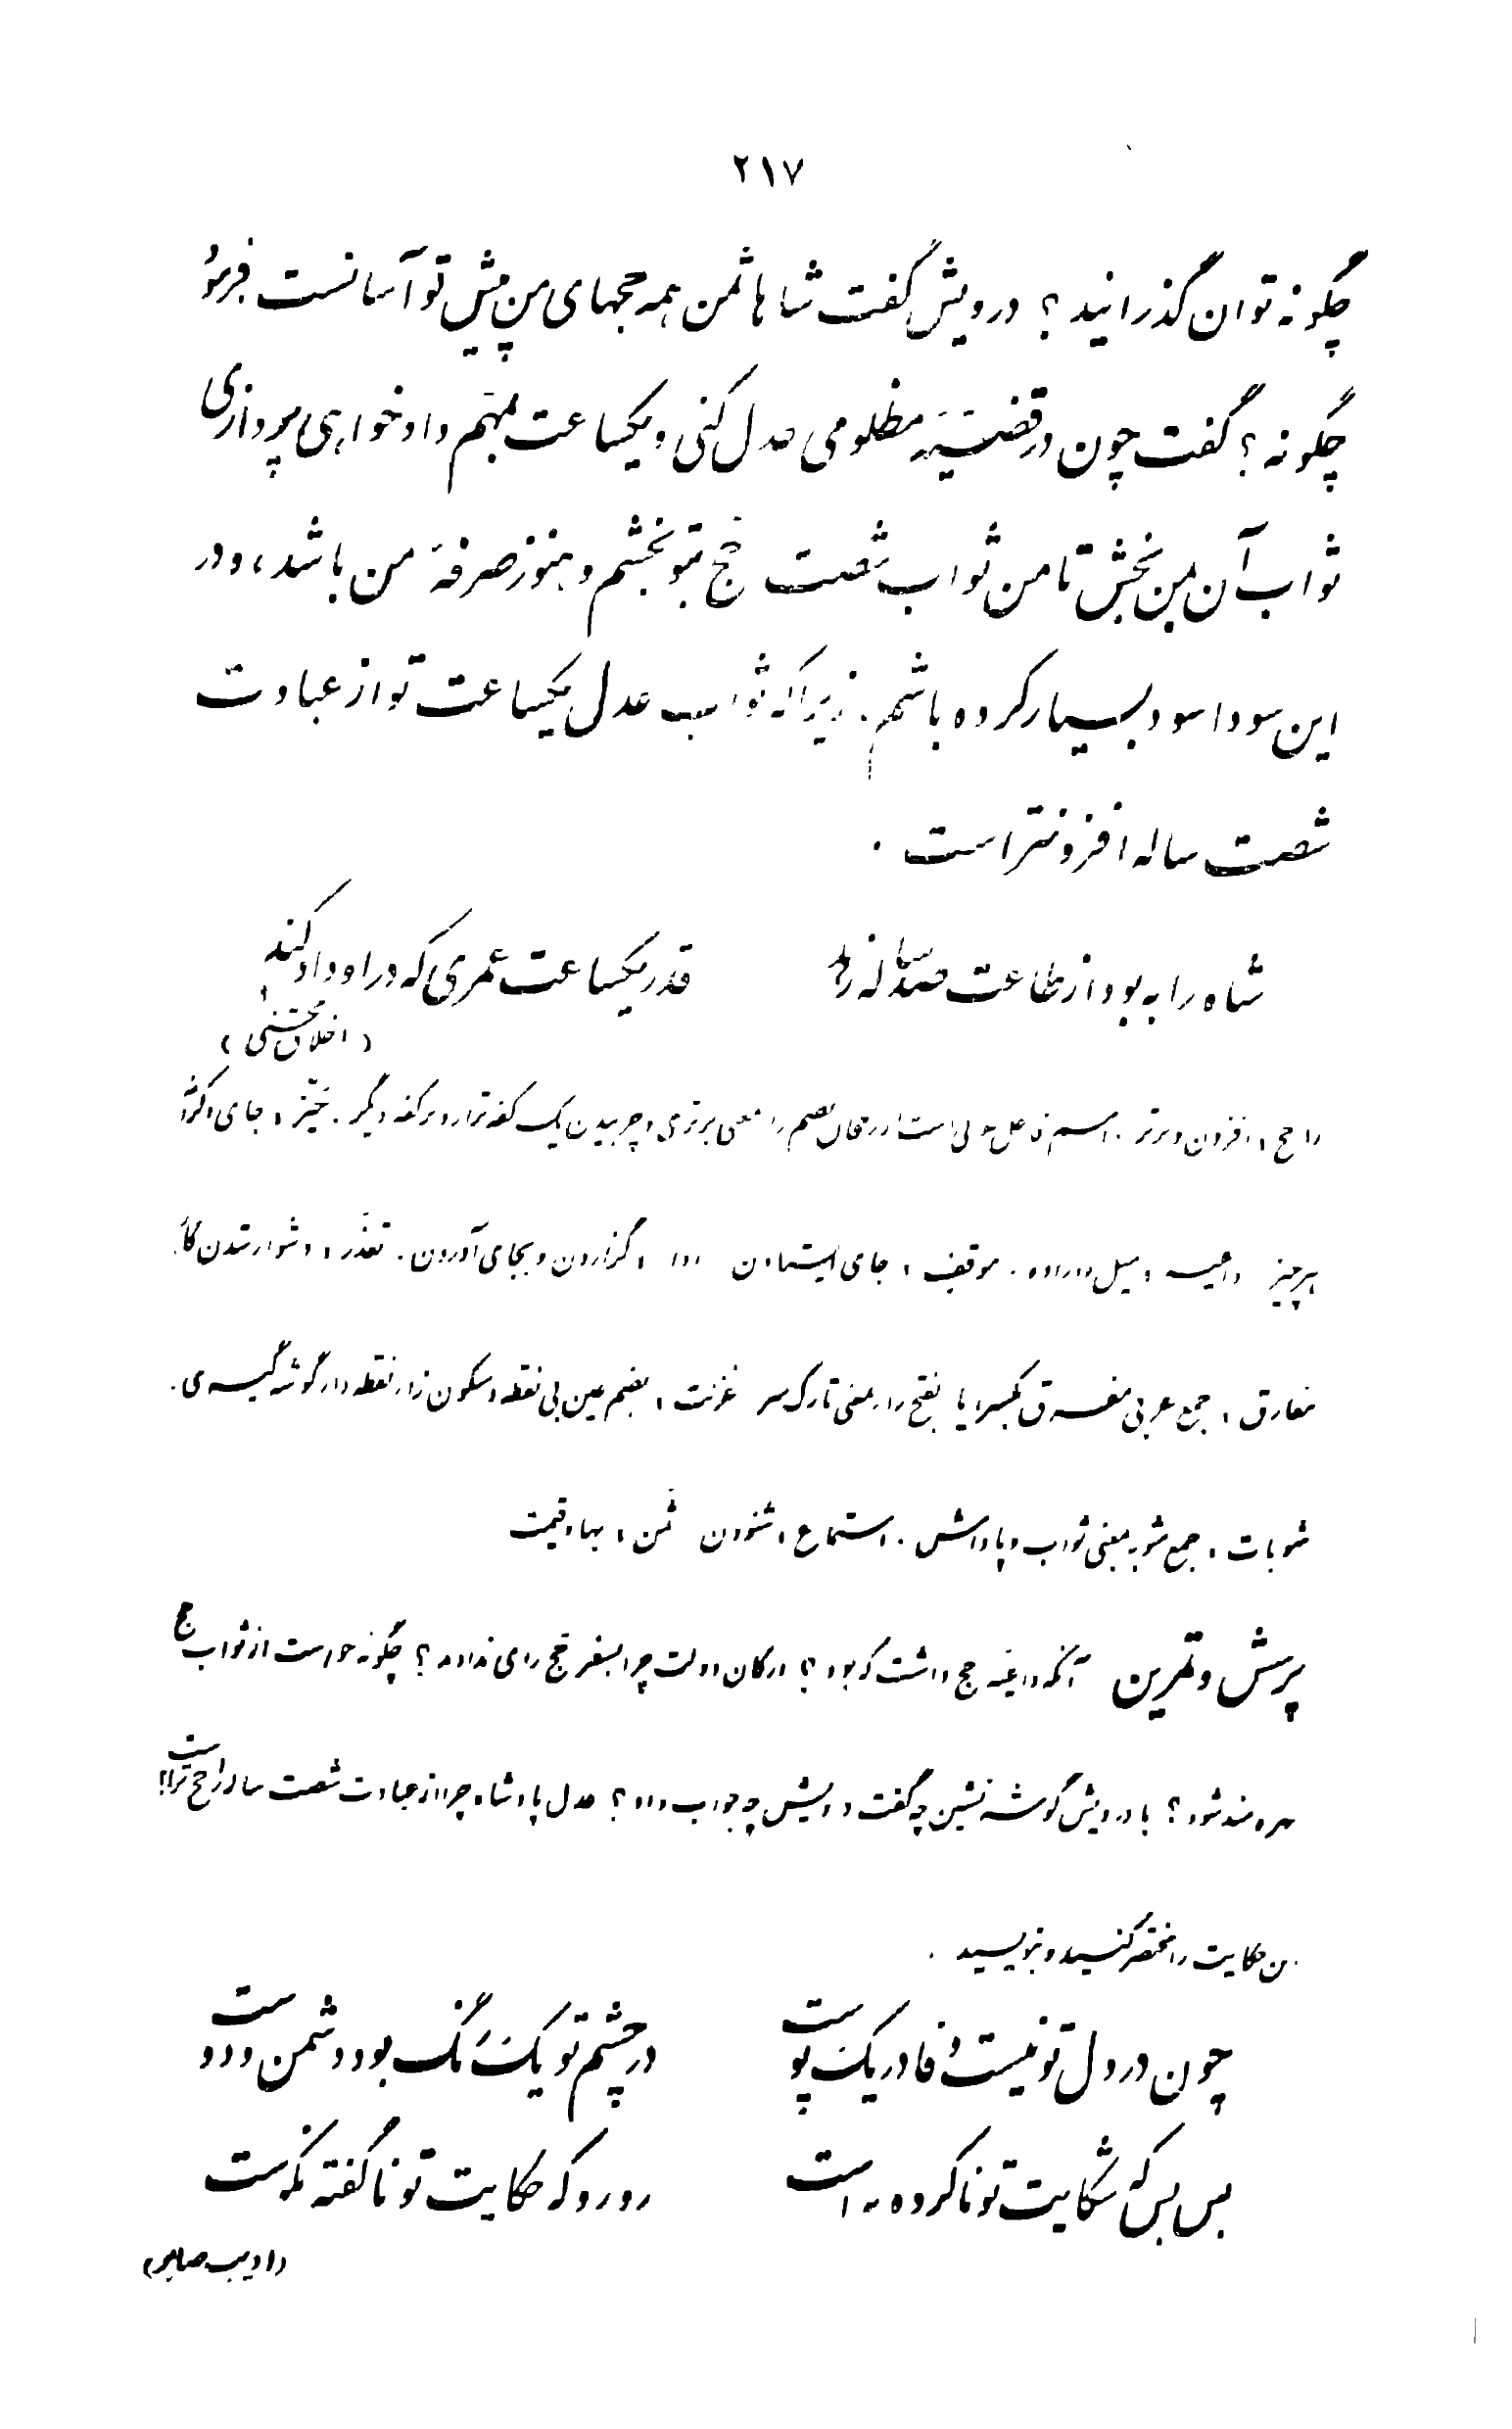 ۲۱۷
چگونه توان گذرانید؟ درویش گفت شاها ثمن همه حجهای من پیش تو آسانست فرمود
چگونه؟ گفت چون در قضیّهٔ مظلومی عدل کنی و یکساعت بمهم دادخواهی پردازی
ثواب آن بمن بخش تا من ثواب شصت حج بتو بخشم و هنوز صرفهٔ من باشد، و در
این سودا سود بسیار کرده باشم. زیرا که ثواب عدل یکساعت تو از عبادت
شصت ساله افزونتر است.
شاه را به بود از طاعت صد ساله زهد
قدر یکساعت عمری که در او داد کند
(اخلاق محسنی)
راجح، افزون و برتر. اسم فاعل عربی است از رجحان بضم را بمعنی برتری و چربیدن یک کفه ترازو بر کفه دیگر. حیّز، جای و کرانهٔ
هرچیز داعیه، میل و اراده. موقف، جای ایستادن ادا، گزاردن و بجای آوردن. تعذّر، دشوار شدن کار.
مفارق، جمع عربی مفرق بکسر یا بفتح را بمعنی تارک سر عزلت، بضم عین بی نقطه و سکون زاء نقطه دار گوشه گیری.
مثوبات، جمع مثوبه بمعنی ثواب و پاداش. استماع، شنودن ثَمن، بها و قیمت
پرسش و تمرین آنکه داعیهٔ حج داشت که بود؟ ارکان دولت چرا بسفر حج رای ندادند؟ چگونه خواست از ثواب حج
بهره مند شود؟ با درویش گوشه نشین چه گفت و درویش چه جواب داد؟ عدل پادشاه چرا از عبادت شصت ساله راجح تر است؟
این حکایت را مختصر کنید و بنویسید.
چون در دل تو نیست وفا در یک پوست
در چشم تو یک رنگ بود دشمن و دوست
بس بس که شکایت تو ناکرده به است
رو رو که حکایت تو ناگفته نکوست
(ادیب صابر)